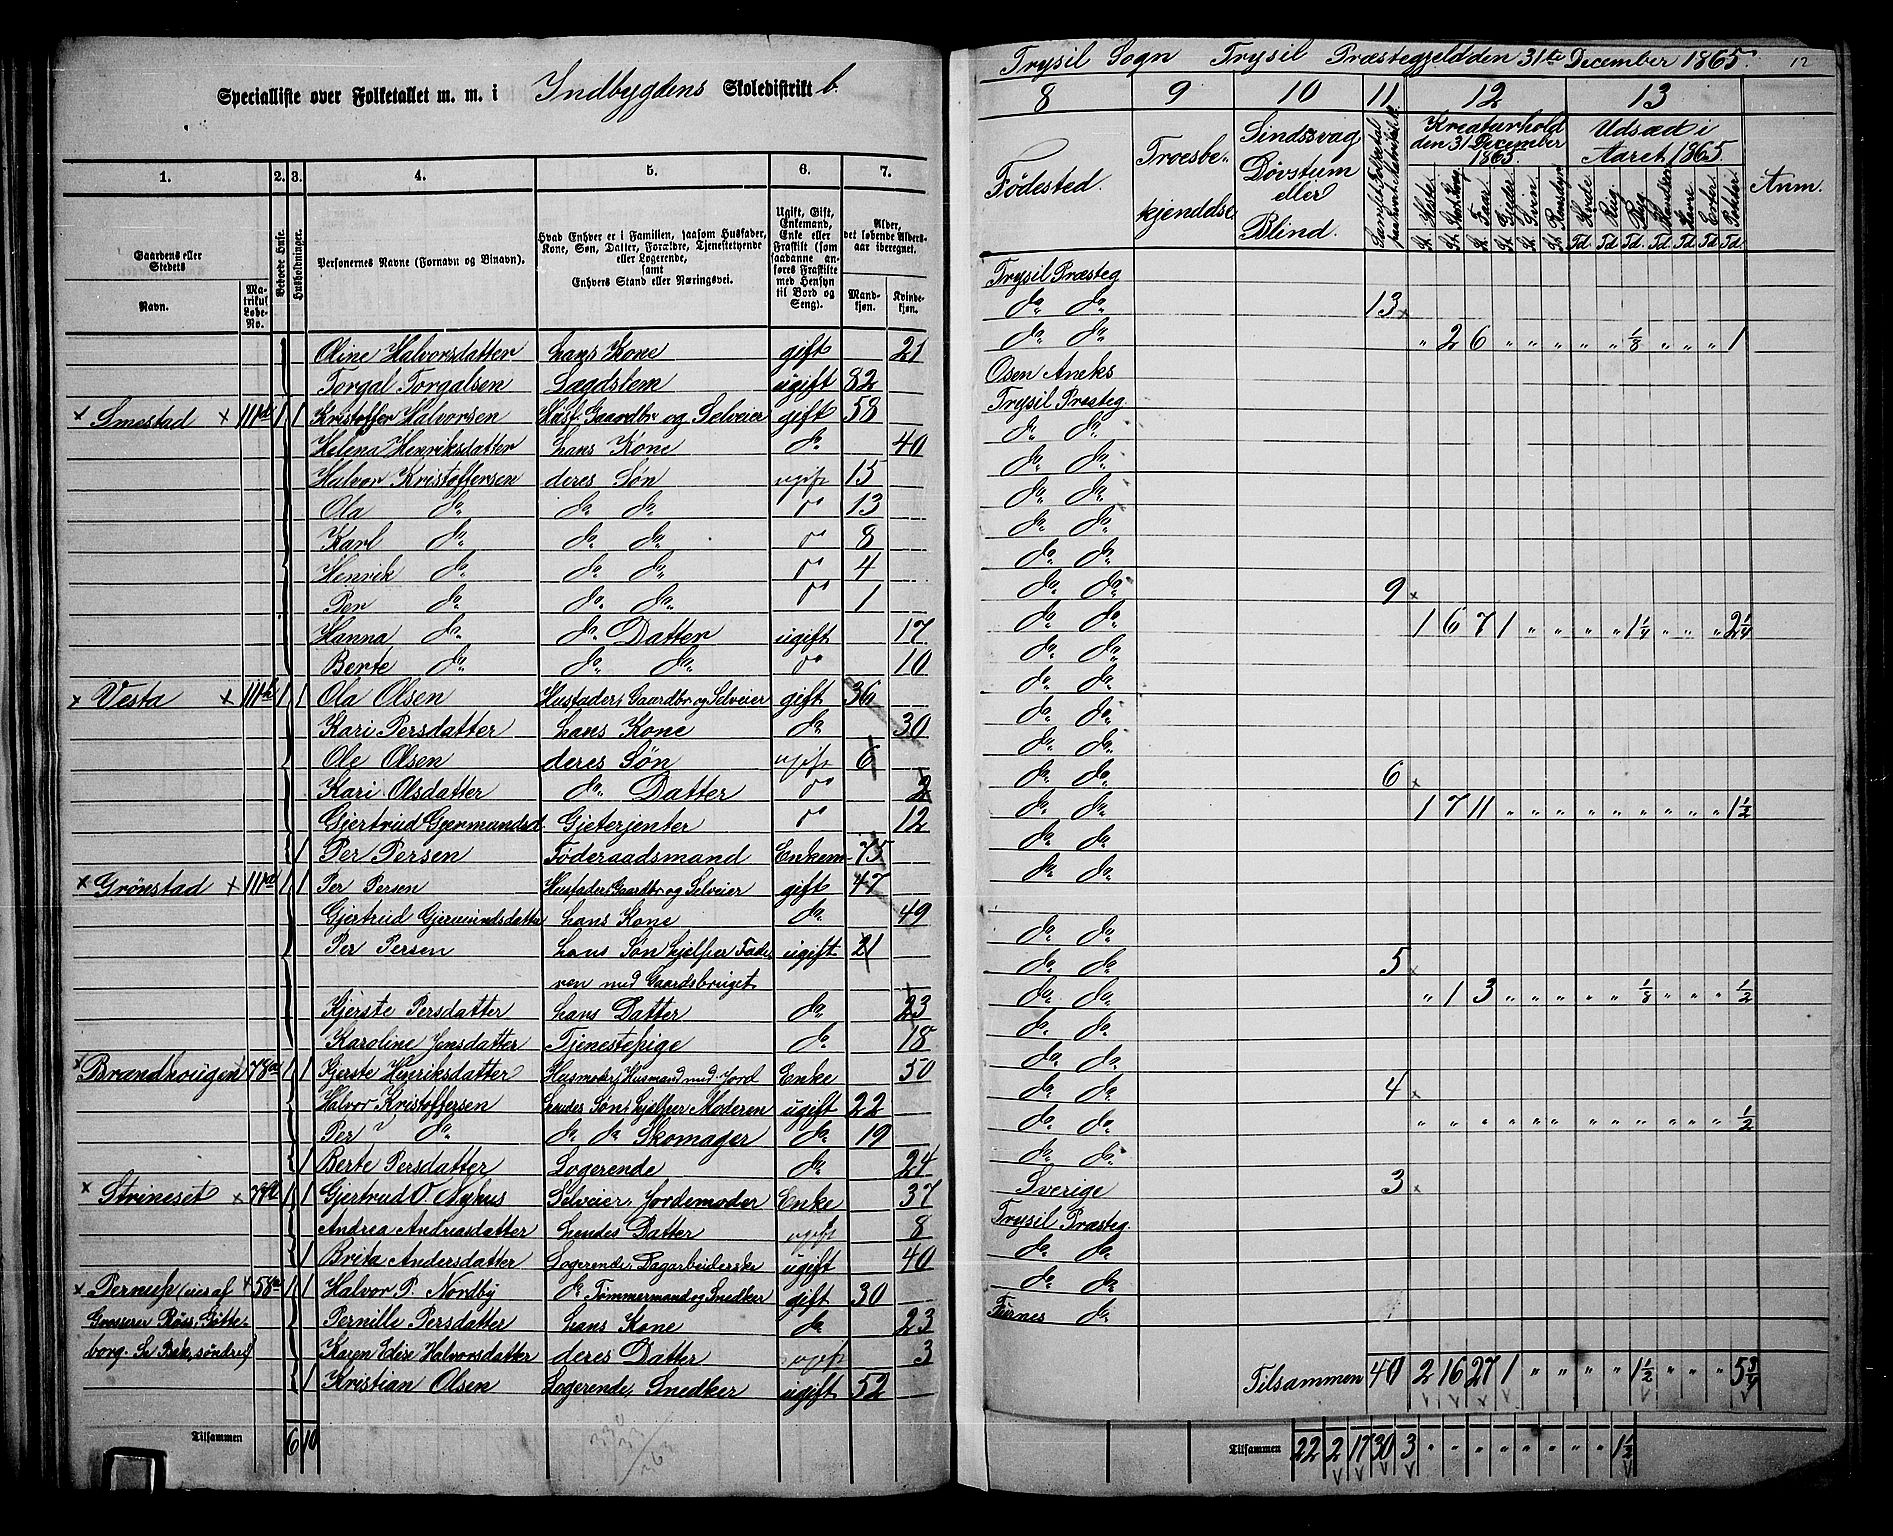 Specialliste over Folketallet m. m. i Indbygdens Skoledistrikt b.
1. 2. 3. 4. 5. 6. 7.
Gaardens eller Stedets
Navn.
Matrikul Løbe-No.
Beboede Huse.
Husholdninger.
Personernes Navne (Fornavn og Binavn).
Hvad Enhver er i Familien, saasom Husfader, Kone, Søn, Datter, Forældre, Tjenestetyende eller Logerende, samt Enhvers Stand eller Næringsvei.
Ugift, Gift, Enkemand, Enke eller Fraskilt (som saadanne anføres Fraskilte med Hensyn til Bord og Seng).
Alder, det løbende Aldersaar iberegnet.
Mandkjøn. Kvindekjøn.
Oline Halvorsdatter hans Kone gift 21
Torgal Torgalsen Lægdslem ugift 82
Smestad 1 1 Kristoffer Halvorsen Husf. Gaardbr og Selveier gift 58
Helena Henriksdatter hans Kone do 40
Halvor Kristoffersen deres Søn ugift 15
Ola do do do do 13
Karl do do do do 8
Henrik do do do do 4
Per do do do do 1
Hanna do do Datter ugift 17
Berte do do do do 10
Vesta 1 1 Ola Olsen Husfader, Gaardbr og Selveier gift 36
Kari Persdatter hans Kone do 30
Ole Olsen deres Søn ugift 6
Kari Olsdatter do Datter do 2
Gjertrud Gjermundsd. Gjeterjenter do 12
1 Per Persen Føderaadsmand Enkem 75
Grönstad 1 1 Per Persen Husfader, Gaardbr og Selveier gift 47
Gjertrud Gjermundsdatter hans Kone do 49
Per Persen hans Søn hjelper Fade- ugift 21
ren med Gaardsbruget
Kjerste Persdatter hans Datter do 23
Karoline Jonsdatter Tjenestepige do 18
Brandhougen 1 1 Kjerste Henriksdatter Husmoder, Husmand med Jord Enke 50
Halvor Kristoffersen hendes Søn, hjelper Moderen ugift 22
Per do do do Skomager do 19
1 Berte Persdatter Logerende do 24
Strineset 1 1 Gjertrud O. Nyhus Selveier, Jordemoder Enke 37
Andrea Andreasdatter hendes Datter ugift 8
1 Brita Andersdatter Logerende, Dagarbeiderske ugift 40
58 1 1 Halvor P. Nordby do Tømmermand og Snedker gift 30
Pernille Persdatter hans Kone do 23
Karen Edise Halvorsdatter deres Datter ugift 3
1 Kristian Olsen Logerende, Snedker ugift 52
Tilsammen 6 10
Trysil Sogn Trysil Præstegjeld den 31te December 1865. 12
8 9 10 11 12 13
Fødested.
Troesbekjendelse
Sindssvag Døvstum eller Blind.
Kreaturhold den 31 December 1865.
Udsæd i Aaret 1865.
Anm.
Trysil Præsteg
do do 13
do do " 2 6 " " " " " 1/8 " " " 1
Osen Aneks
Trysil Præsteg.
do do
do do
do do
do do
do do
do do 9
do do 1 6 7 1 " " " " 1/4 " " " 2 1/4
do do
do do
do do
do do
do do 6
do do 1 7 11 " " " " " " " " " 1/2
do do
do do
do do
do do 5
do do " 1 3 " " " " " 1/8 " " " 1/2
do do
do do
do do 4
do do " " " " " " " " " " " " 1/2
do do
Sverige 3
Trysil Præsteg.
do do
do do
Furnes do
Tilsammen 40 2 16 27 1 " " " " 1 1/2 " " " 5 3/4
Tilsammen 22 2 17 30 3 " " " " " " " 1 1/2